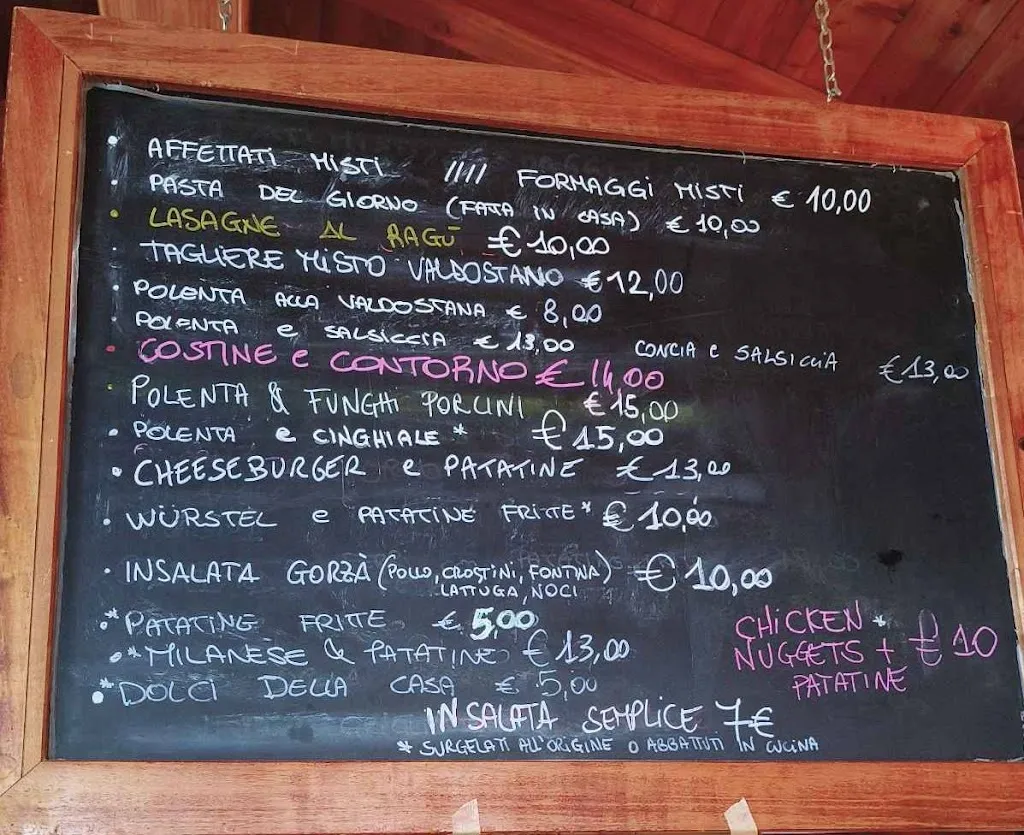 • AFFETTATI MISTI //// FORMAGGI MISTI € 10,00
• PASTA DEL GIORNO (FATA IN CASA) € 10,00
• LASAGNE AL RAGÙ € 10,00
• TAGLIERE MISTO VALDOSTANO € 12,00
• POLENTA ALLA VALDOSTANA € 8,00
• POLENTA e SALSICCIA € 13,00 CONCIA e SALSICCIA € 13,00
• COSTINE e CONTORNO € 14,00
• POLENTA & FUNGHI PORCINI € 15,00
• POLENTA e CINGHIALE * € 15,00
• CHEESEBURGER e PATATINE € 13,00
• WÜRSTEL e PATATINE FRITTE * € 10,00
• INSALATA GORZÀ (POLLO, CROSTINI, FONTINA) € 10,00
LATTUGA, NOCI
•* PATATINE FRITTE € 5,00
•* MILANESE & PATATINE € 13,00
•* DOLCI DELLA CASA € 5,00
CHICKEN *
NUGGETS + € 10
PATATINE
INSALATA SEMPLICE 7€
* SURGELATI ALL'ORIGINE O ABBATTUTI IN CUCINA